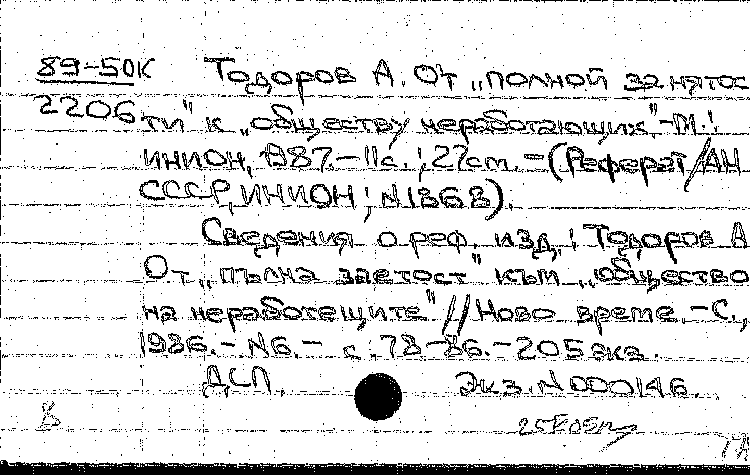 89-50К Тодоров А. От „полной занятос
2206 ти" к „обществу неработающих".-М.:
ИНИОН, 1987.-11с.; 27см.-(Реферат/АН
СССР, ИНИОН; N1868).
Сведения о реф. изд.: Тодоров А
От „пълна заетост" към „общество
на неработещите" // Ново време.-С.,
1986.-N6.- с.78-86.-205экз.
ДСП. Экз.N000146.
В